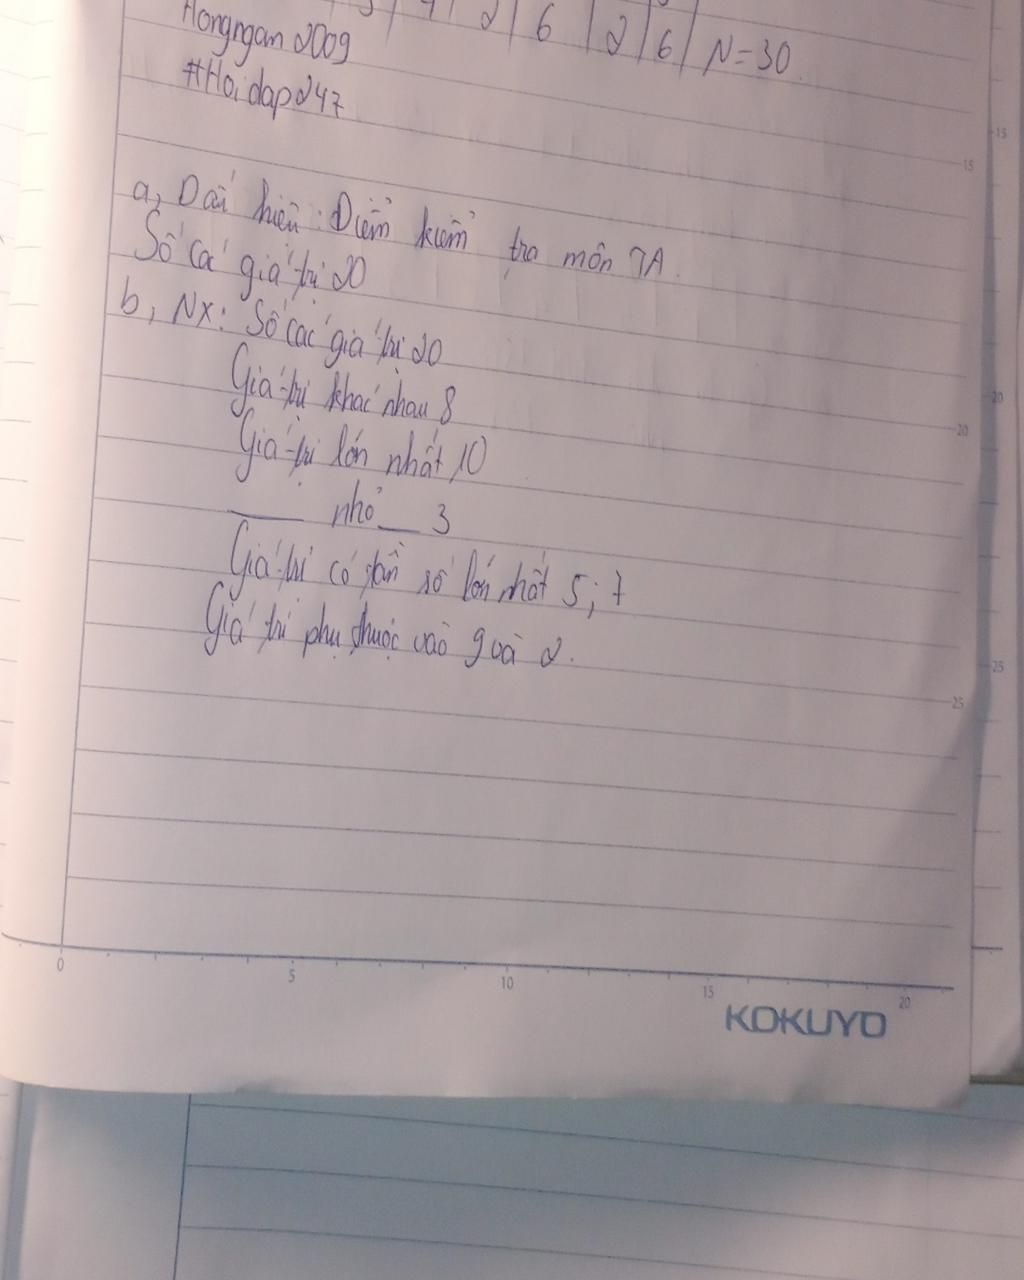 4 2 6 2 6 N=30
Hongngam 2009
#Hoidap247
a, Dấu hiệu: Điểm kiểm tra môn 7A.
Số các giá trị 20
b, NX: Số các giá trị 20
Giá trị khác nhau 8
Giá trị lớn nhất 10
___ nhỏ __ 3
Giá trị có tần số lớn nhất 5; 7
Giá trị phụ thuộc vào 9 và 2.
15
15
20
20
25
25
0 5 10 15 20
KOKUYO